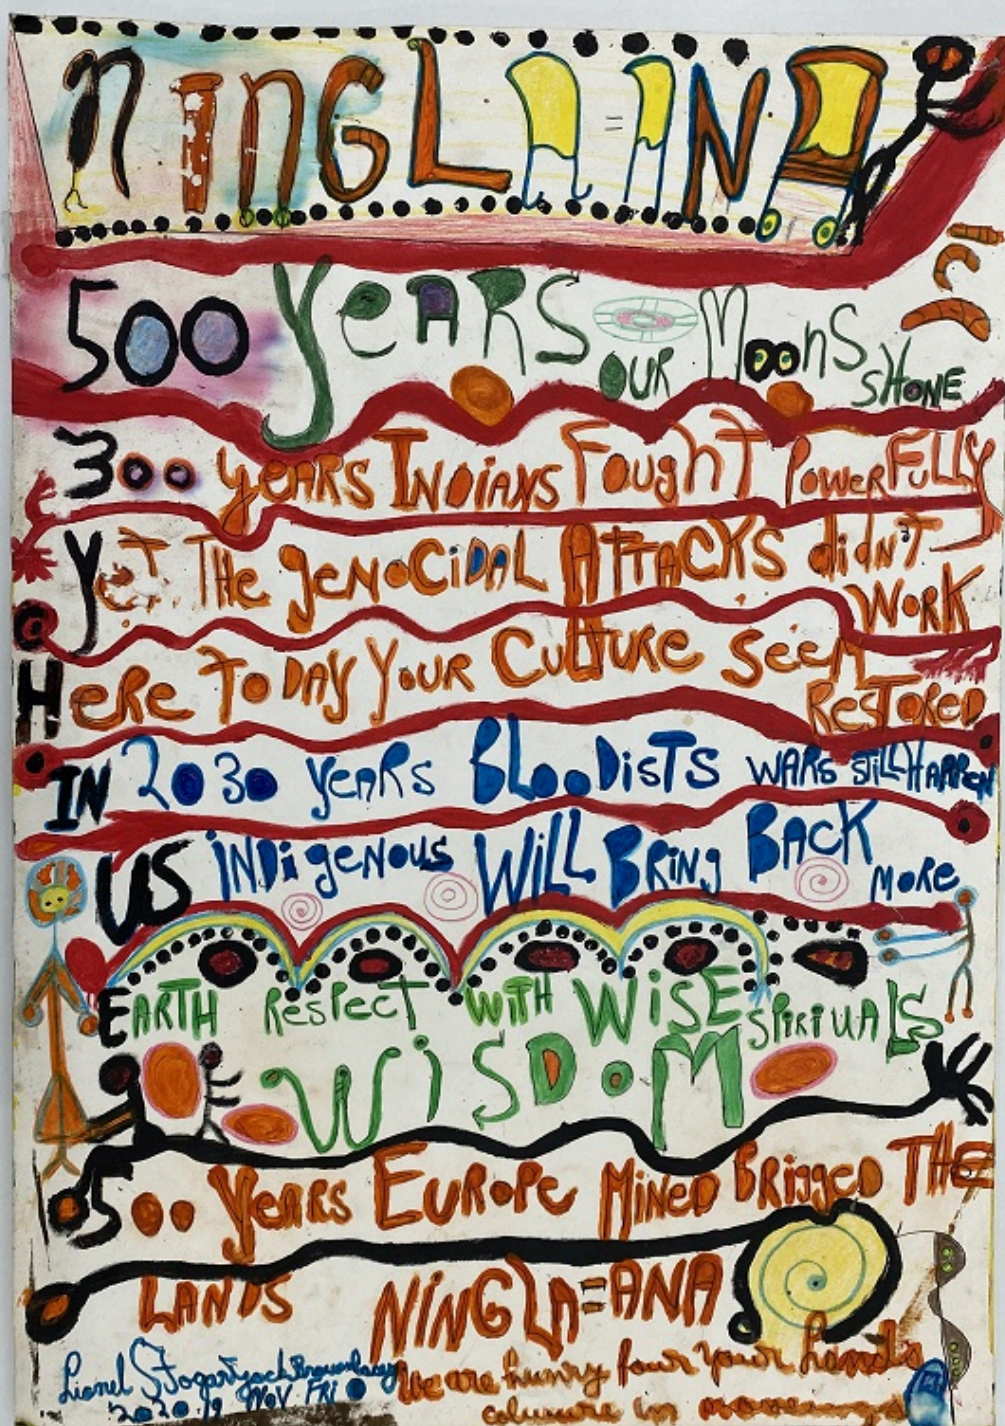 NINGLA=ANA
500 YeARS OUR MooNS SHONE
300 yeARS INDiANS FoughT PoWeRFuLLY
YeT THe geNoCiDAL ATTACKS didn'T WoRK
HeRe ToDAY YouR CuLTuRe SeeM ReSToReD
IN 2030 YeARS BLooDisTS WARS STiLL HAPPeN
US INDigeNous WiLL BRiNg BACK MoRe
EARTH ResPecT WiTH WiSE SPiRiTUALS
WiSDoM
500 YeARS EURoPe MiNeD BRigged THe
LANDS NiNG LA=ANA
Lionel Fogarty
We are huNry four your Lands
2020 19 NoV FRi